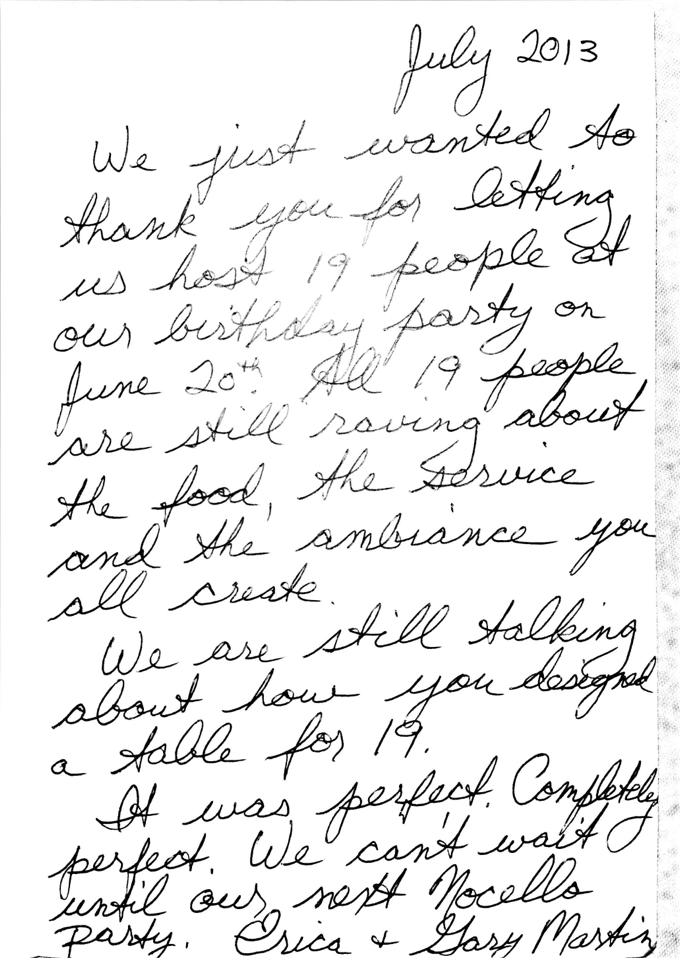 July 2013
We just wanted to
thank you for letting
us host 19 people at
our birthday party on
June 20th. All 19 people
are still raving about
the food, the service
and the ambiance you
all create.
We are still talking
about how you designed
a table for 19.
It was perfect. Completely
perfect. We can't wait
until our next Nocello
party. Erica + Gary Martin